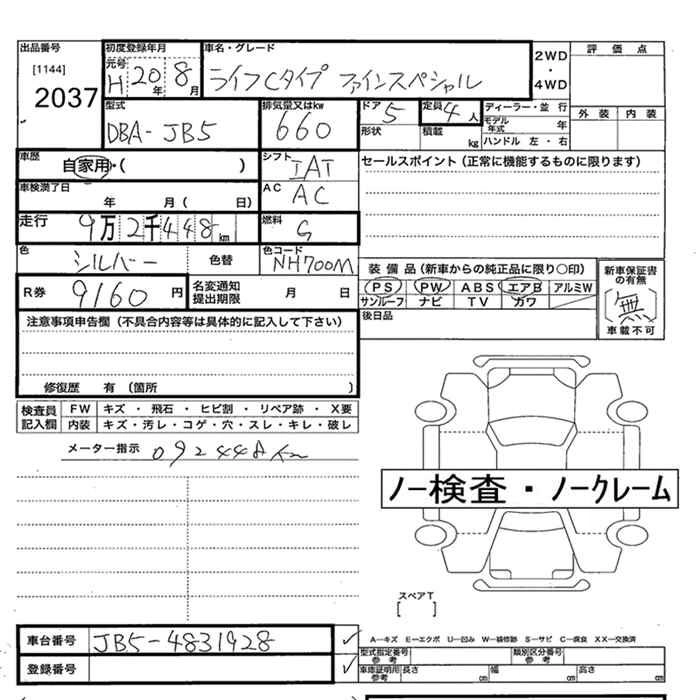 出品番号
[1144]
2037
初度登録年月
元号
H 20年 8月
車名・グレード
ライフCタイプ ファインスペシャル
2WD
・
4WD
評価点
外装 内装
型式
DBA-JB5
排気量又はkw
660
ドア
5
形状
定員
4人
積載
kg
ディーラー・並行
モデル年式 年
ハンドル 左・右
車歴
自家用・( )
シフト
IAT
セールスポイント(正常に機能するものに限ります)
車検満了日
年 月( 日)
AC
AC
走行
9万2千448km
燃料
G
色
シルバー
色替
色コード
NH700M
R券
9160円
名変通知
提出期限
月 日
装備品(新車からの純正品に限り○印)
PS PW ABS エアB アルミW
サンルーフ ナビ TV カワ
後日品
新車保証書
の有無
無
車載不可
注意事項申告欄(不具合内容等は具体的に記入して下さい)
修復歴 有(箇所 )
検査員
記入欄
FW キズ・飛石・ヒビ割・リペア跡・X要
内装 キズ・汚レ・コゲ・穴・スレ・キレ・破レ
メーター指示 092448km
ノー検査・ノークレーム
スペアT
[ ]
車台番号
JB5-4831928
登録番号
A−キズ E−エクボ U−凹み W−補修跡 S−サビ C−腐食 XX−交換済
型式指定番号
参考
類別区分番号
参考
車庫証明用
参考
長さ cm 幅 cm 高さ cm